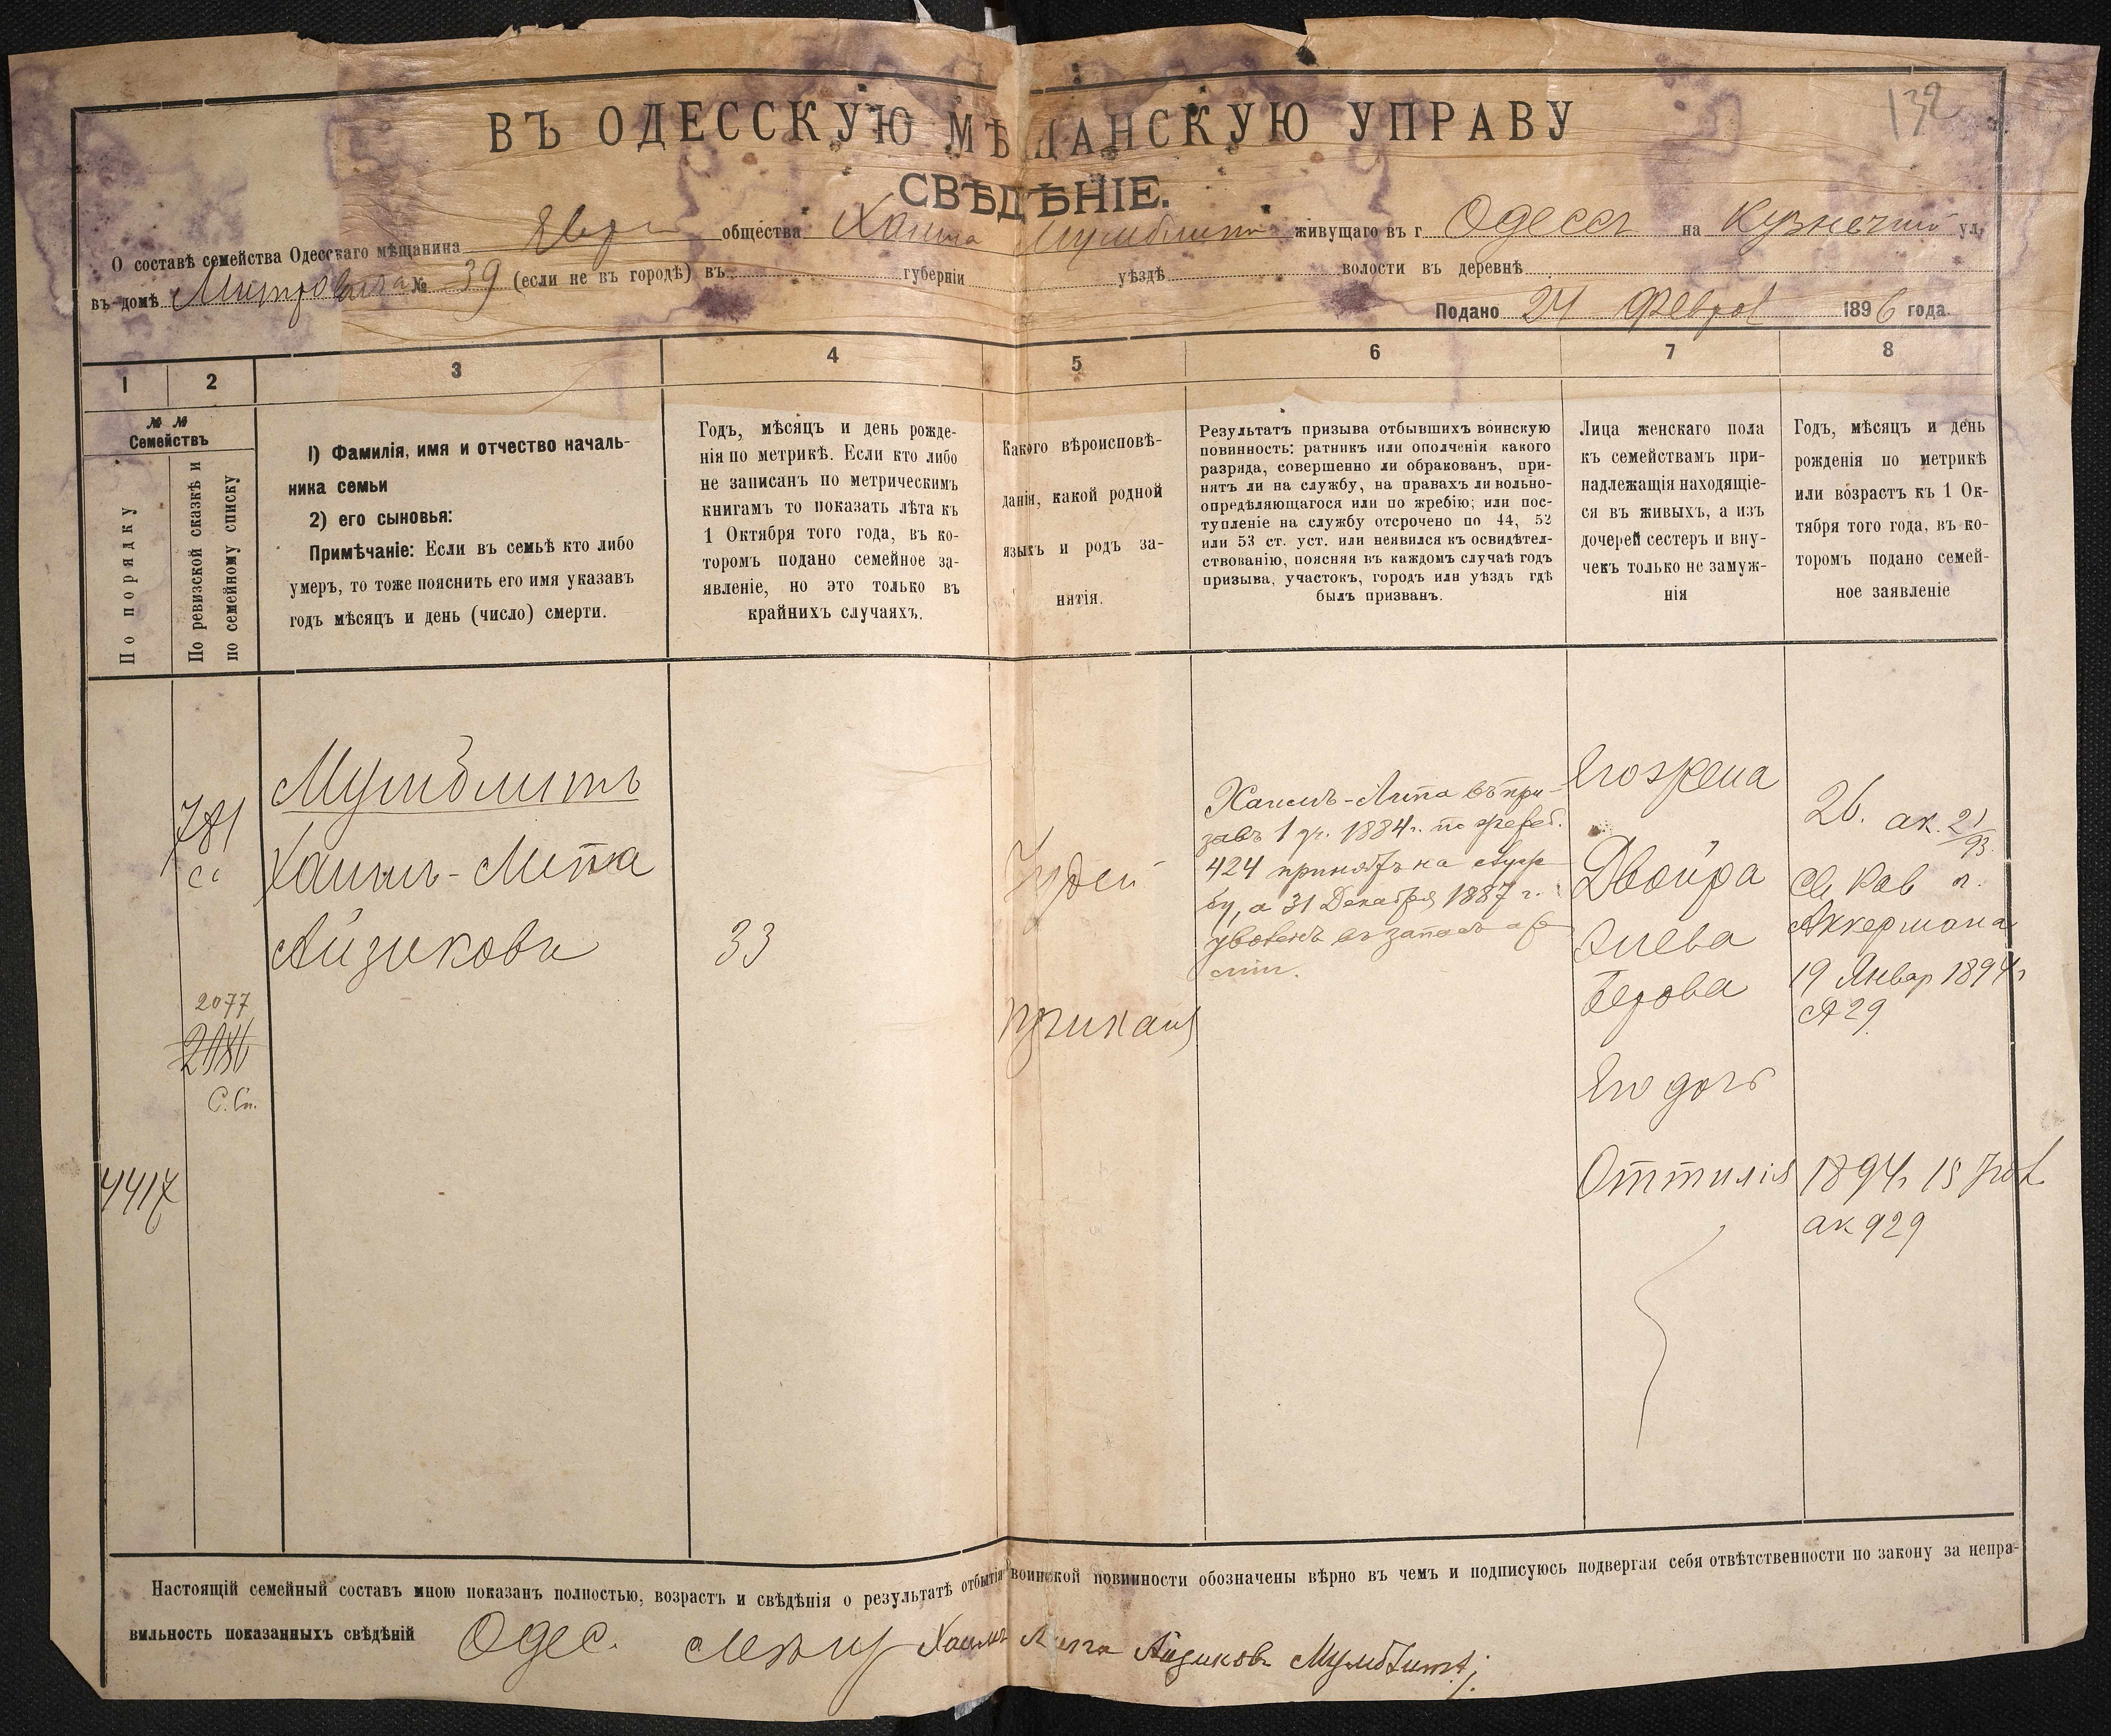 132
ВЪ ОДЕССКУЮ МѢЩАНСКУЮ УПРАВУ
СВѢДѢНІЕ.
О составѣ семейства Одесскаго мѣщанина Евр общества Хаима живущаго въ г Одессѣ на Кузнечной ул,
въ домѣ № 39 (если не въ городѣ) въ губерніи уѣздѣ волости въ деревнѣ
Подано 24 Феврал 1896 года.
1 2 3 4 5 6 7 8
№ №
Семействъ
По порядку
По ревизской сказкѣ и
по семейному списку
1) Фамилія, имя и отчество началь-
ника семьи
2) его сыновья:
Примѣчаніе: Если въ семьѣ кто либо
умеръ, то тоже пояснить его имя указавъ
годъ мѣсяцъ и день (число) смерти.
Годъ, мѣсяцъ и день рожде-
нія по метрикѣ. Если кто либо
не записанъ по метрическимъ
книгамъ то показать лѣта къ
1 Октября того года, въ ко-
торомъ подано семейное за-
явленіе, но это только въ
крайнихъ случаяхъ.
Какого вѣроисповѣ-
данія, какой родной
языкъ и родъ за-
нятія.
Результатъ призыва отбывшихъ воинскую
повинность: ратникъ или ополченія какого
разряда, совершенно ли обракованъ, при-
нятъ ли на службу, на правахъ ли вольно-
опредѣляющагося или по жребію; или пос-
тупленіе на службу отсрочено по 44, 52
или 53 ст. уст. или неявился къ освидѣтел-
ствованію, поясняя въ каждомъ случаѣ годъ
призыва, участокъ, городъ или уѣздъ гдѣ
былъ призванъ.
Лица женскаго пола
къ семействамъ при-
надлежащія находящіе-
ся въ живыхъ, а изъ
дочерей сестеръ и вну-
чекъ только не замуж-
нія
Годъ, мѣсяцъ и день
рожденія по метрикѣ
или возрастъ къ 1 Ок-
тября того года, въ ко-
торомъ подано семей-
ное заявленіе
781
2077
С. Сп.
4417
Мумблитъ
Хаимъ-Липа
Айзиковъ
33
Іудей
Хаимъ-Липа въ при-
зывъ 1 уч. 1884 г. по жреб.
424 принятъ на служ
бу, а 31 Декабря 1887 г.
уволенъ въ запасъ ар
міи.
Его жена
Двойра
Зиева
Берова
Его дочь
Оттилія
26. ак. 21/93
Аккермана
19 Январ 1894 г
А 29
1894 г 15
ак 929
Настоящій семейный составъ мною показанъ полностью, возрастъ и свѣдѣнія о результатѣ отбытія воинской повинности обозначены вѣрно въ чемъ и подписуюсь подвергая себя отвѣтственности по закону за непра-
вильность показанныхъ свѣдѣній Одес. Хаимъ Липа Айзиковъ Мумблитъ